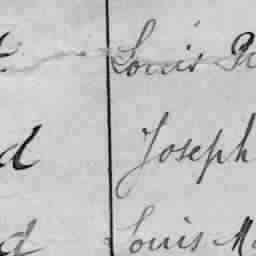 Louis
d Joseph
d Louis